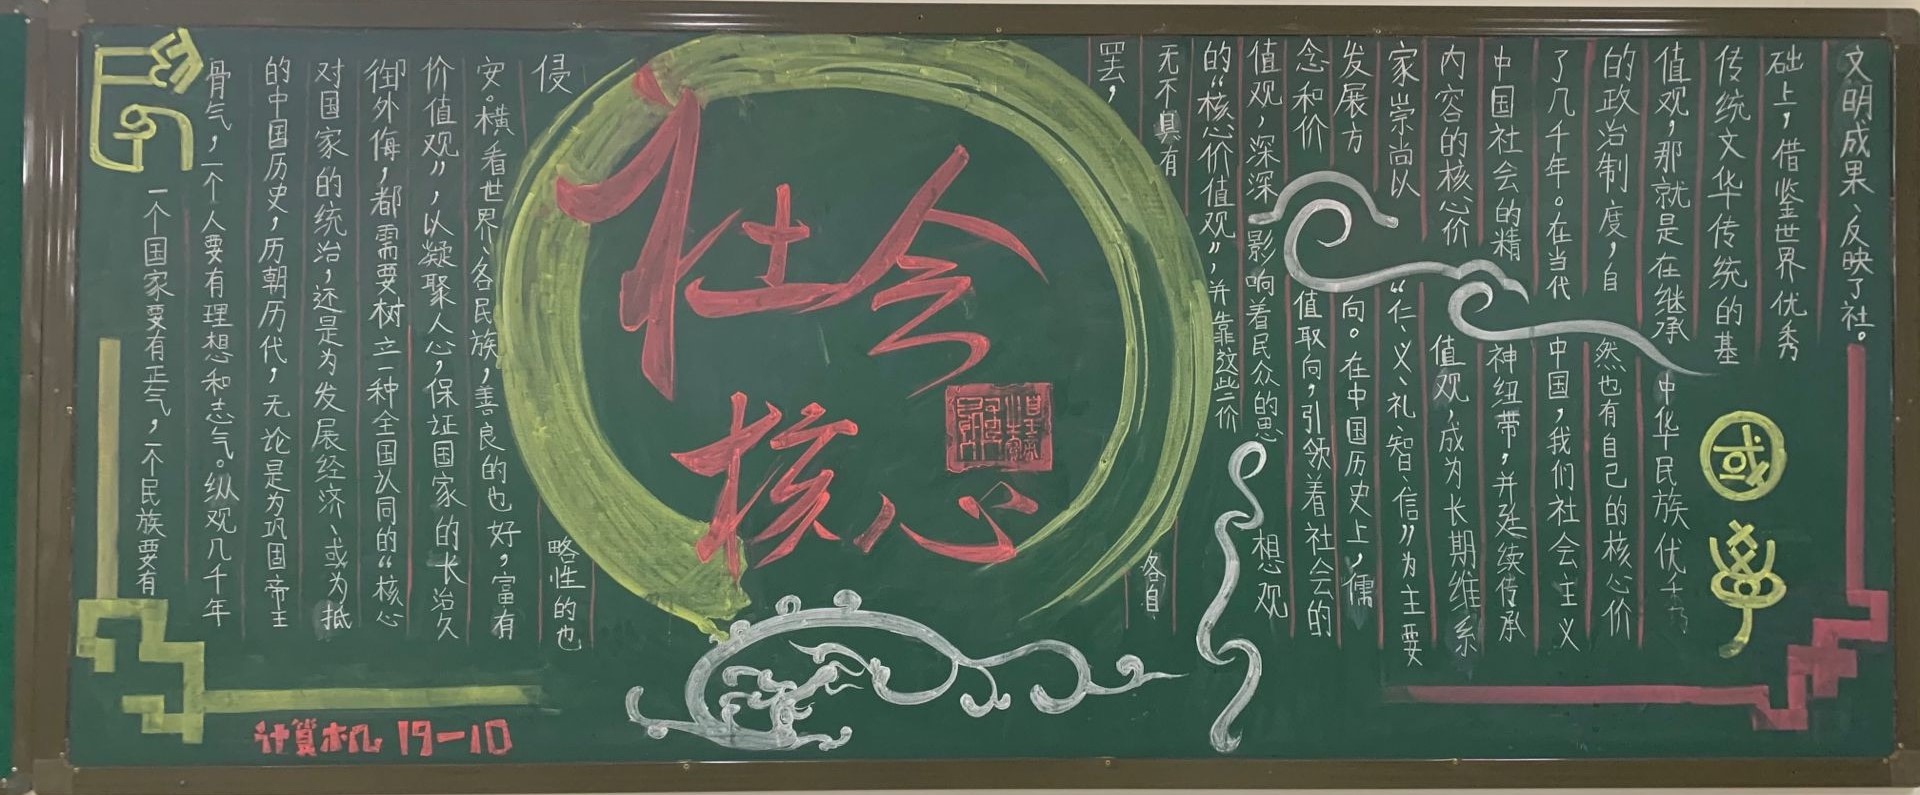 社会
核心
一个国家要有正气,一个民族要有
骨气,一个人要有理想和志气。纵观几千年
的中国历史,历朝历代,无论是为巩国帝王
对国家的统治,还是为发展经济、或为抵
御外侮,都需要树立一种全国认同的“核心
价值观”,以凝聚人心,保证国家的长治久
安。横看世界、各民族,善良的也好,富有
侵略性的也
罢,
无不具有各自
的“核心价值观”,并靠这些价
值观,深深影响着民众的思想观
念和价值取向,引领着社会的
发展方向。在中国历史上,儒
家崇尚以“仁、义、礼、智、信”为主要
内容的核心价值观,成为长期维系
中国社会的精神纽带,并延续传承
了几千年。在当代中国,我们社会主义
的政治制度,自然也有自己的核心价
值观,那就是在继承中华民族优秀
传统文华传统的基
础上,借鉴世界优秀
文明成果、反映了社。
计算机 19-10